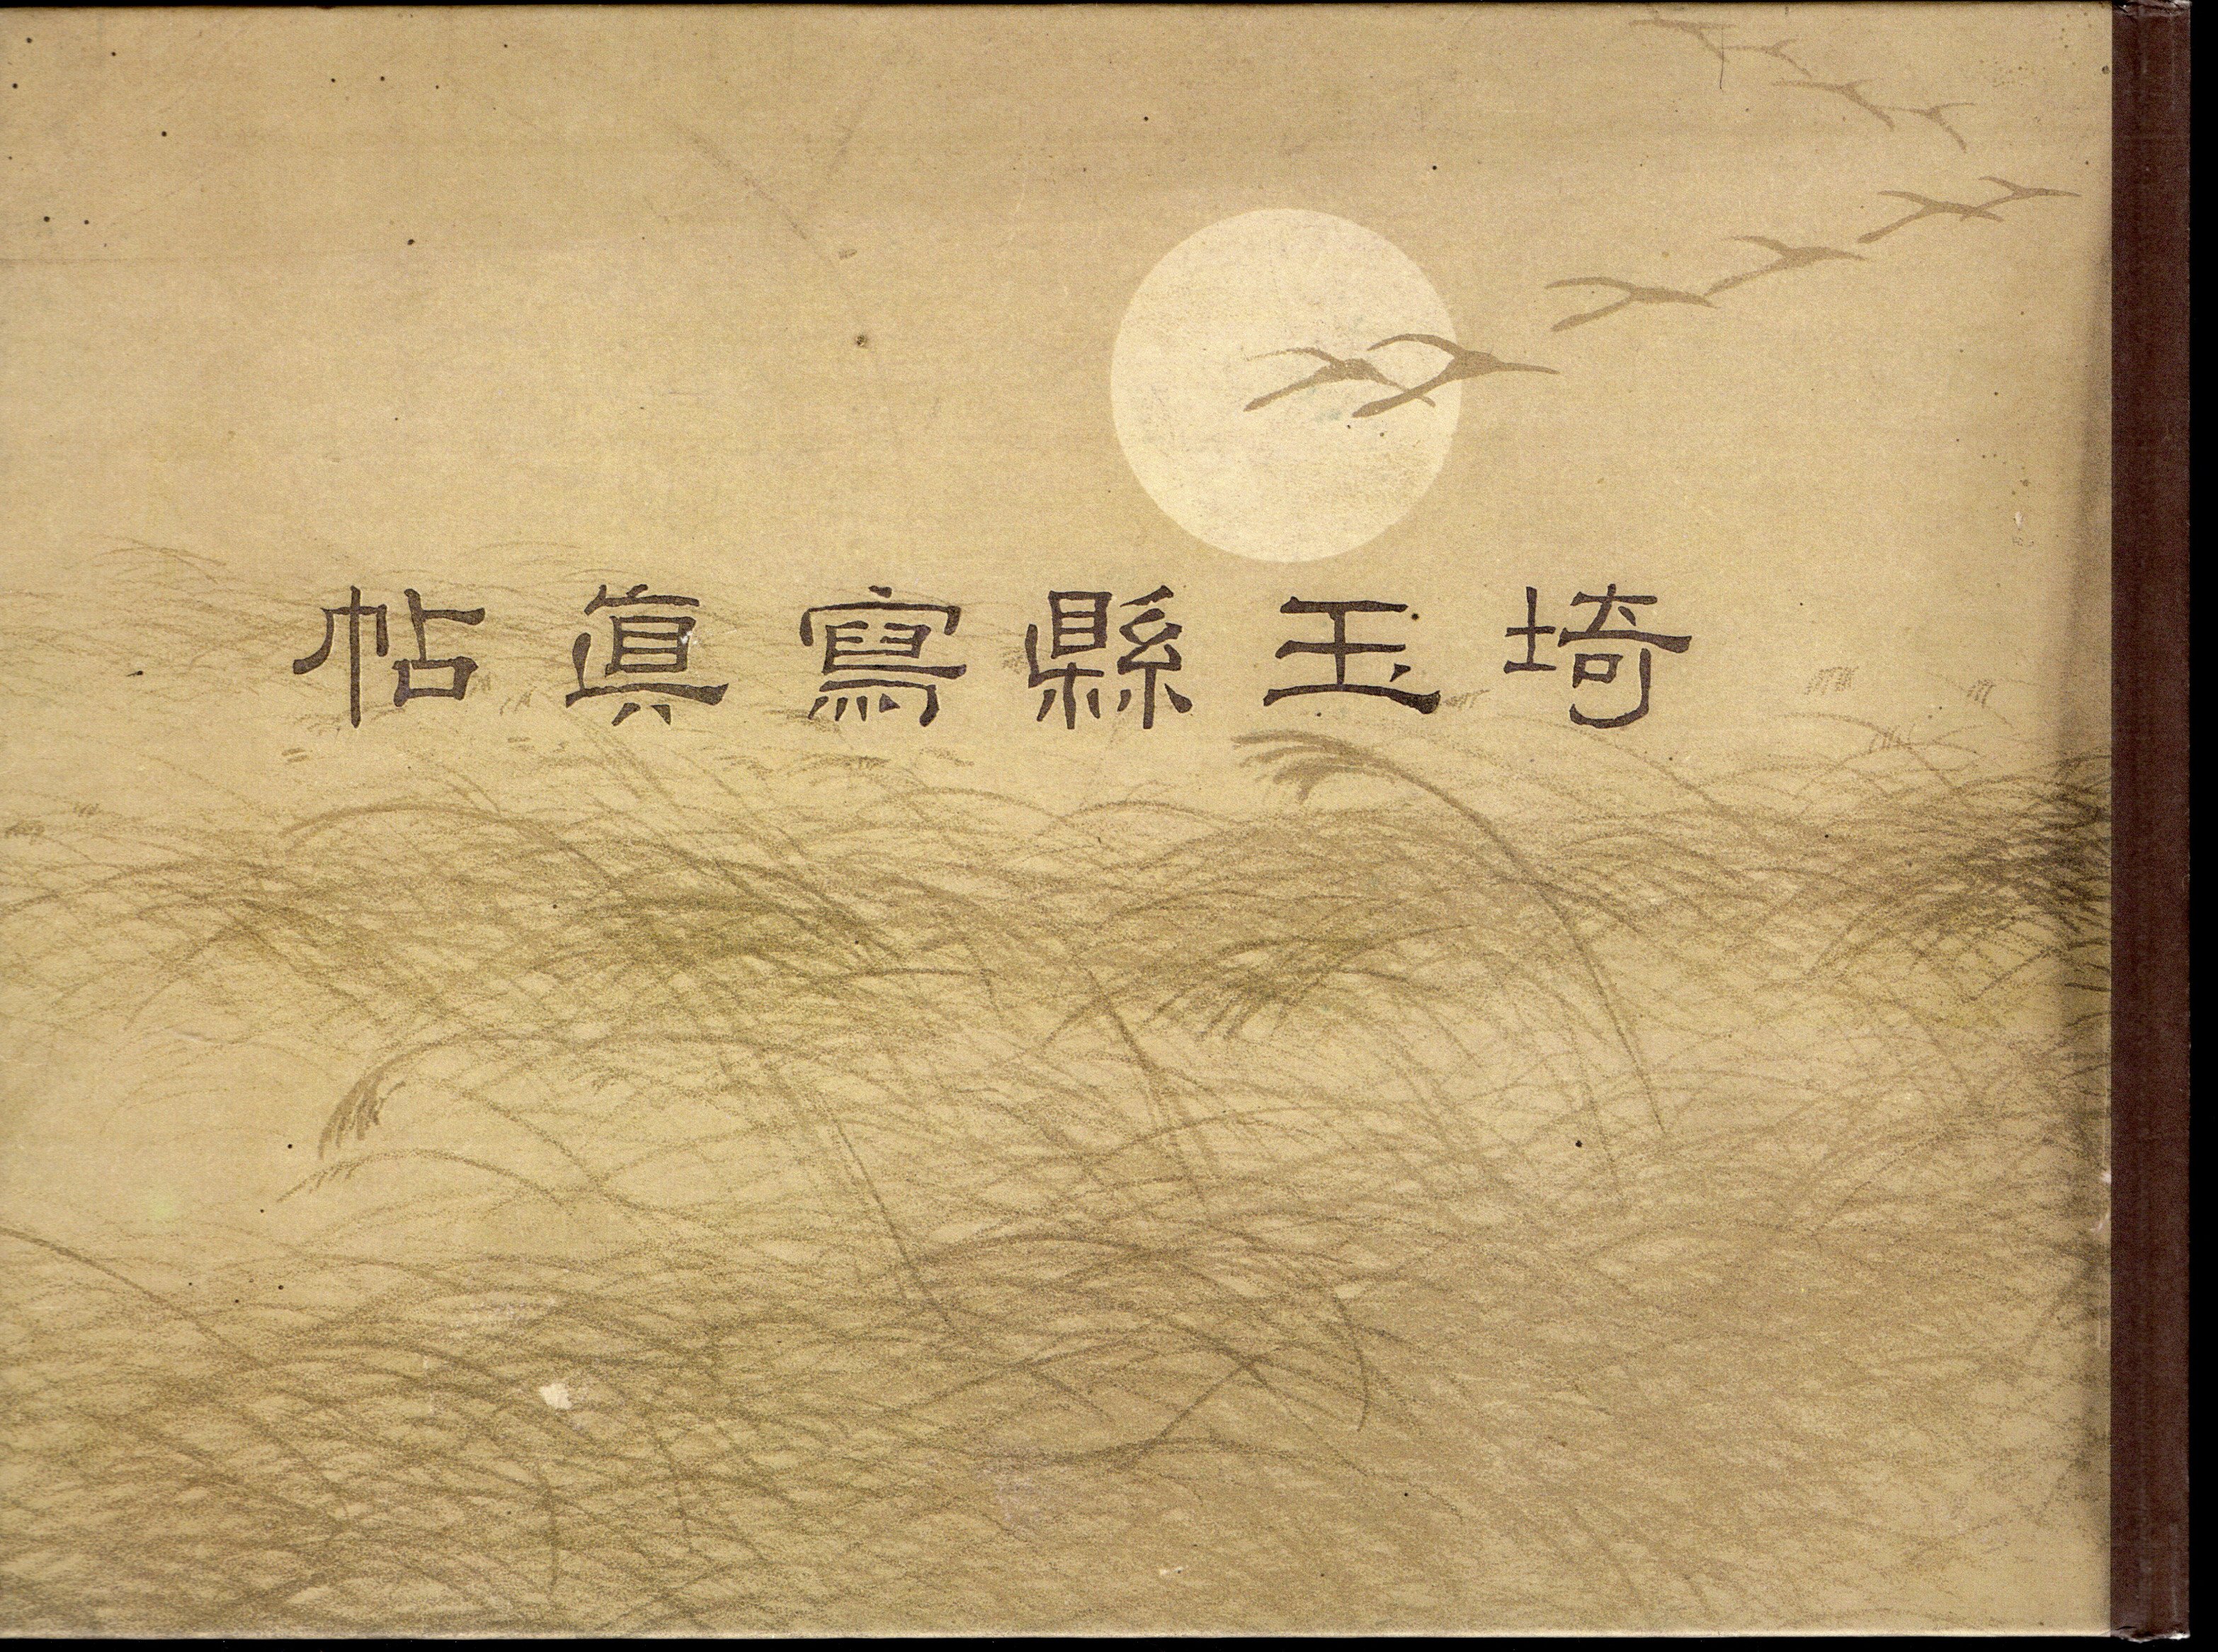 埼玉縣寫眞帖